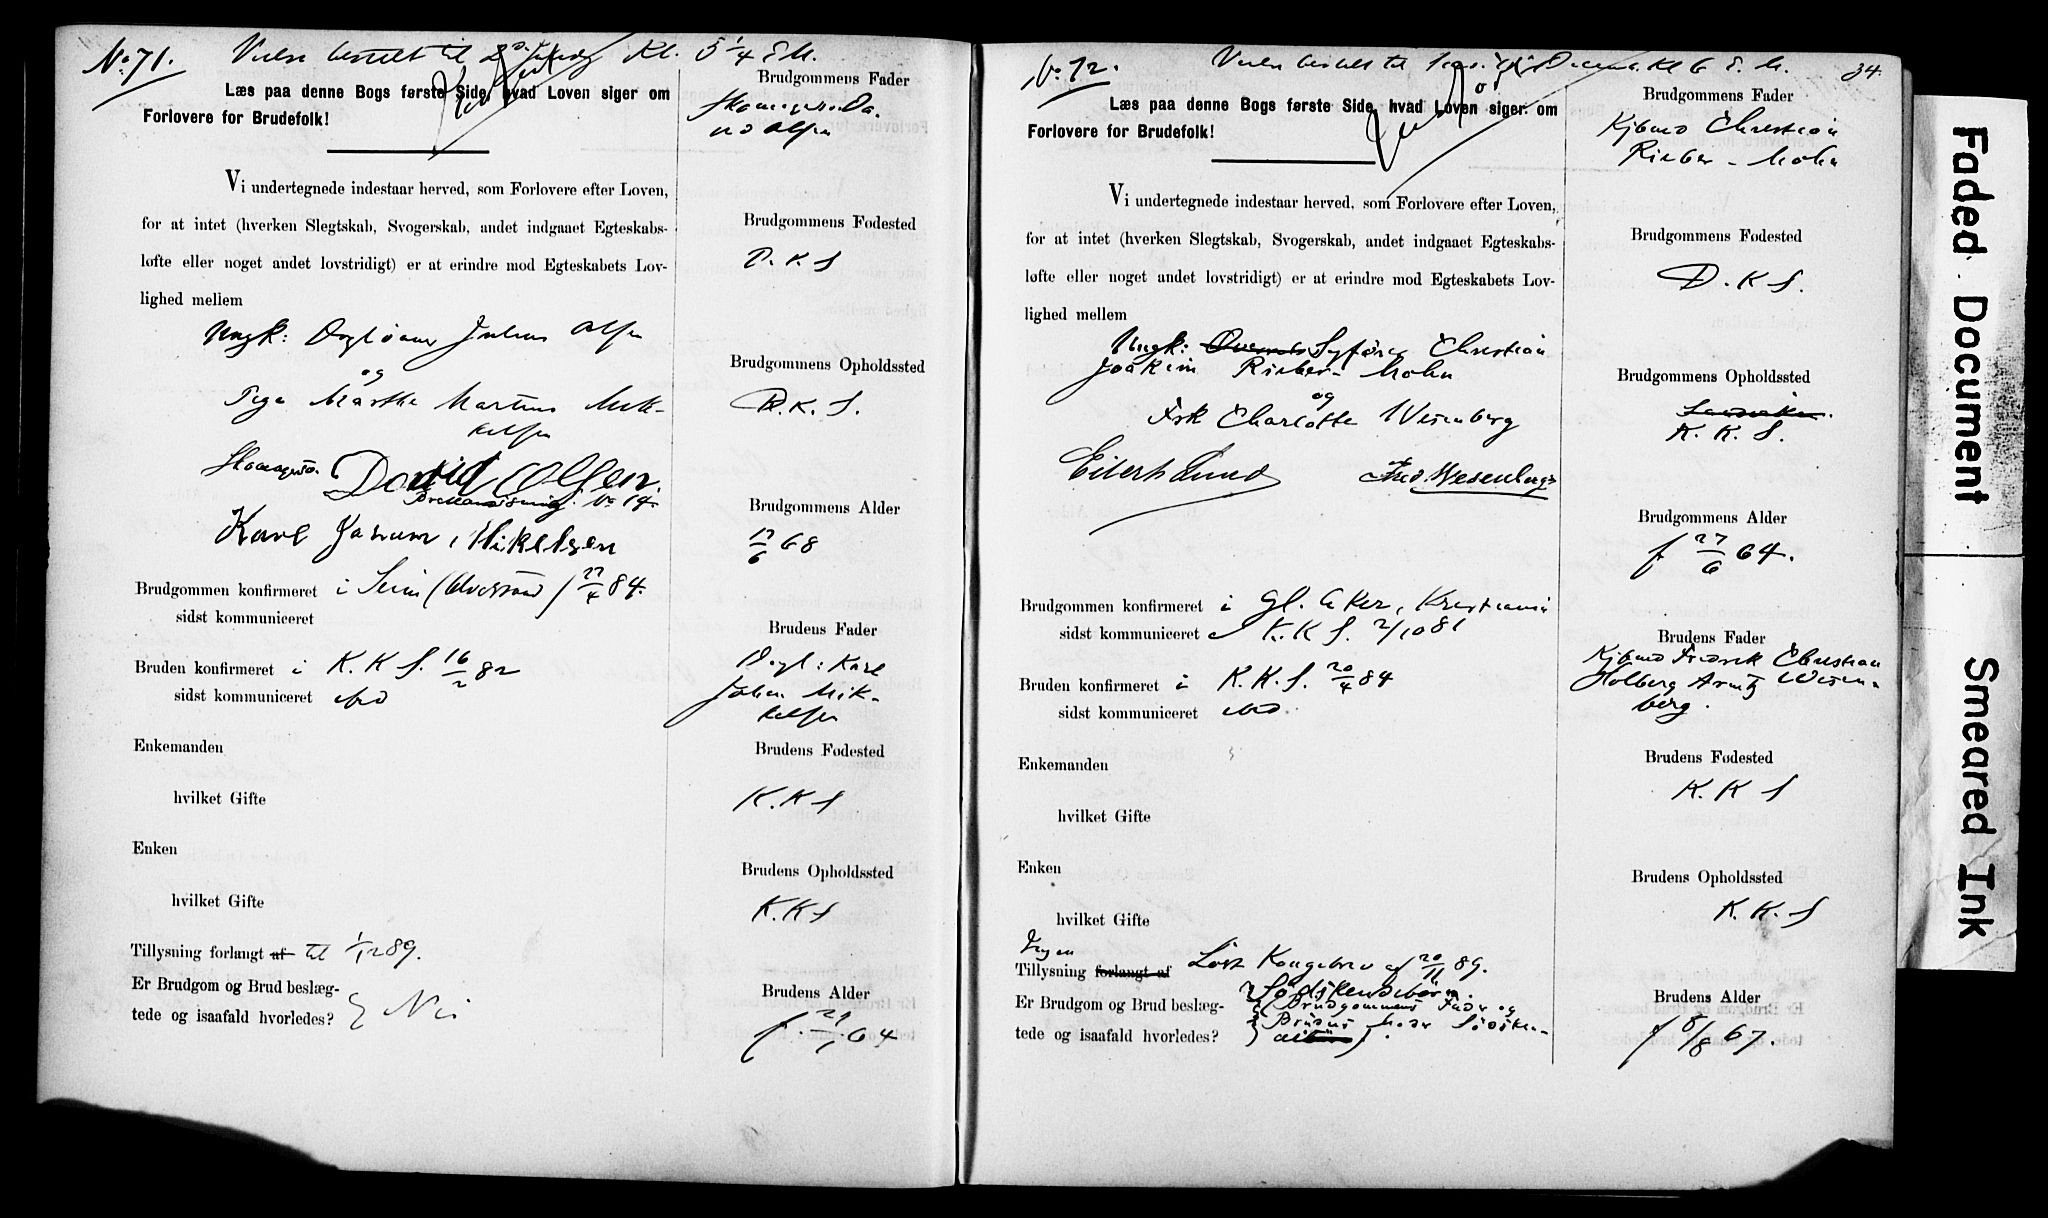 No 71.
Vielse bestilt til 2d Juledag Kl. 5 1/4 E. M.
Læs paa denne Bogs første Side, hvad Loven siger om
Forlovere for Brudefolk!
Vi undertegnede indestaar herved, som Forlovere efter Loven,
for at intet (hverken Slegtskab, Svogerskab, andet indgaaet Egteskabs-
løfte eller noget andet lovstridigt) er at erindre mod Egteskabets Lov-
lighed mellem
Ungk: Julius Olsen
og
Pige Marthe Mik-
kelsen
David Olsen.
No 14.
Karl Mikelsen
Brudgommen konfirmeret i Seim 84.
sidst kommuniceret
Bruden konfirmeret i K. K S. 16/2 82
sidst kommuniceret
Enkemanden
hvilket Gifte
Enken
hvilket Gifte
Tillysning forlangt af til 1/12 89.
Er Brudgom og Brud beslæg-
tede og isaafald hvorledes? } Nei
Brudgommens Fader
Da-
vid Olsen
Brudgommens Fødested
D. K. S
Brudgommens Opholdssted
D. K. S.
Brudgommens Alder
68
Brudens Fader
Karl
Johan Mik-
kelsen
Brudens Fødested
K. K S
Brudens Opholdssted
K. K S
Brudens Alder
f. 64
No 72.
Vielse bestilt til Decemb. Kl 6 E. M.
34.
Læs paa denne Bogs første Side, hvad Loven siger om
Forlovere for Brudefolk!
Vi undertegnede indestaar herved, som Forlovere efter Loven,
for at intet (hverken Slegtskab, Svogerskab, andet indgaaet Egteskabs-
løfte eller noget andet lovstridigt) er at erindre mod Egteskabets Lov-
lighed mellem
Ungk: Sagfører Christian
Joakim Rieber-Mohn
og
Frk Charlotte Wesenberg
Eilert Lund Fred. Wesenberg
Brudgommen konfirmeret i Gl. Aker, Kristiania
sidst kommuniceret K. K S. 2/10 81
Bruden konfirmeret i K. K. S. 20/4 84
sidst kommuniceret
Enkemanden
hvilket Gifte
Enken
hvilket Gifte
Ingen
Tillysning forlangt af Løst Kongebrev af 20/11 89.
Er Brudgom og Brud beslæg-
tede og isaafald hvorledes?
Södskendebørn.
(Brudgommens Fader og
Brudens Moder Södsken-
de)
Brudgommens Fader
Kjbmd Christian
Rieber-Mohn
Brudgommens Fødested
D. K S.
Brudgommens Opholdssted
K. K. S.
Brudgommens Alder
f 27/6 64.
Brudens Fader
Kjbmd Fredrik Christian
Holberg Arentz Wesen-
berg.
Brudens Fødested
K. K S
Brudens Opholdssted
K. K. S
Brudens Alder
f 8/8 67.
Faded Document
Smeared Ink